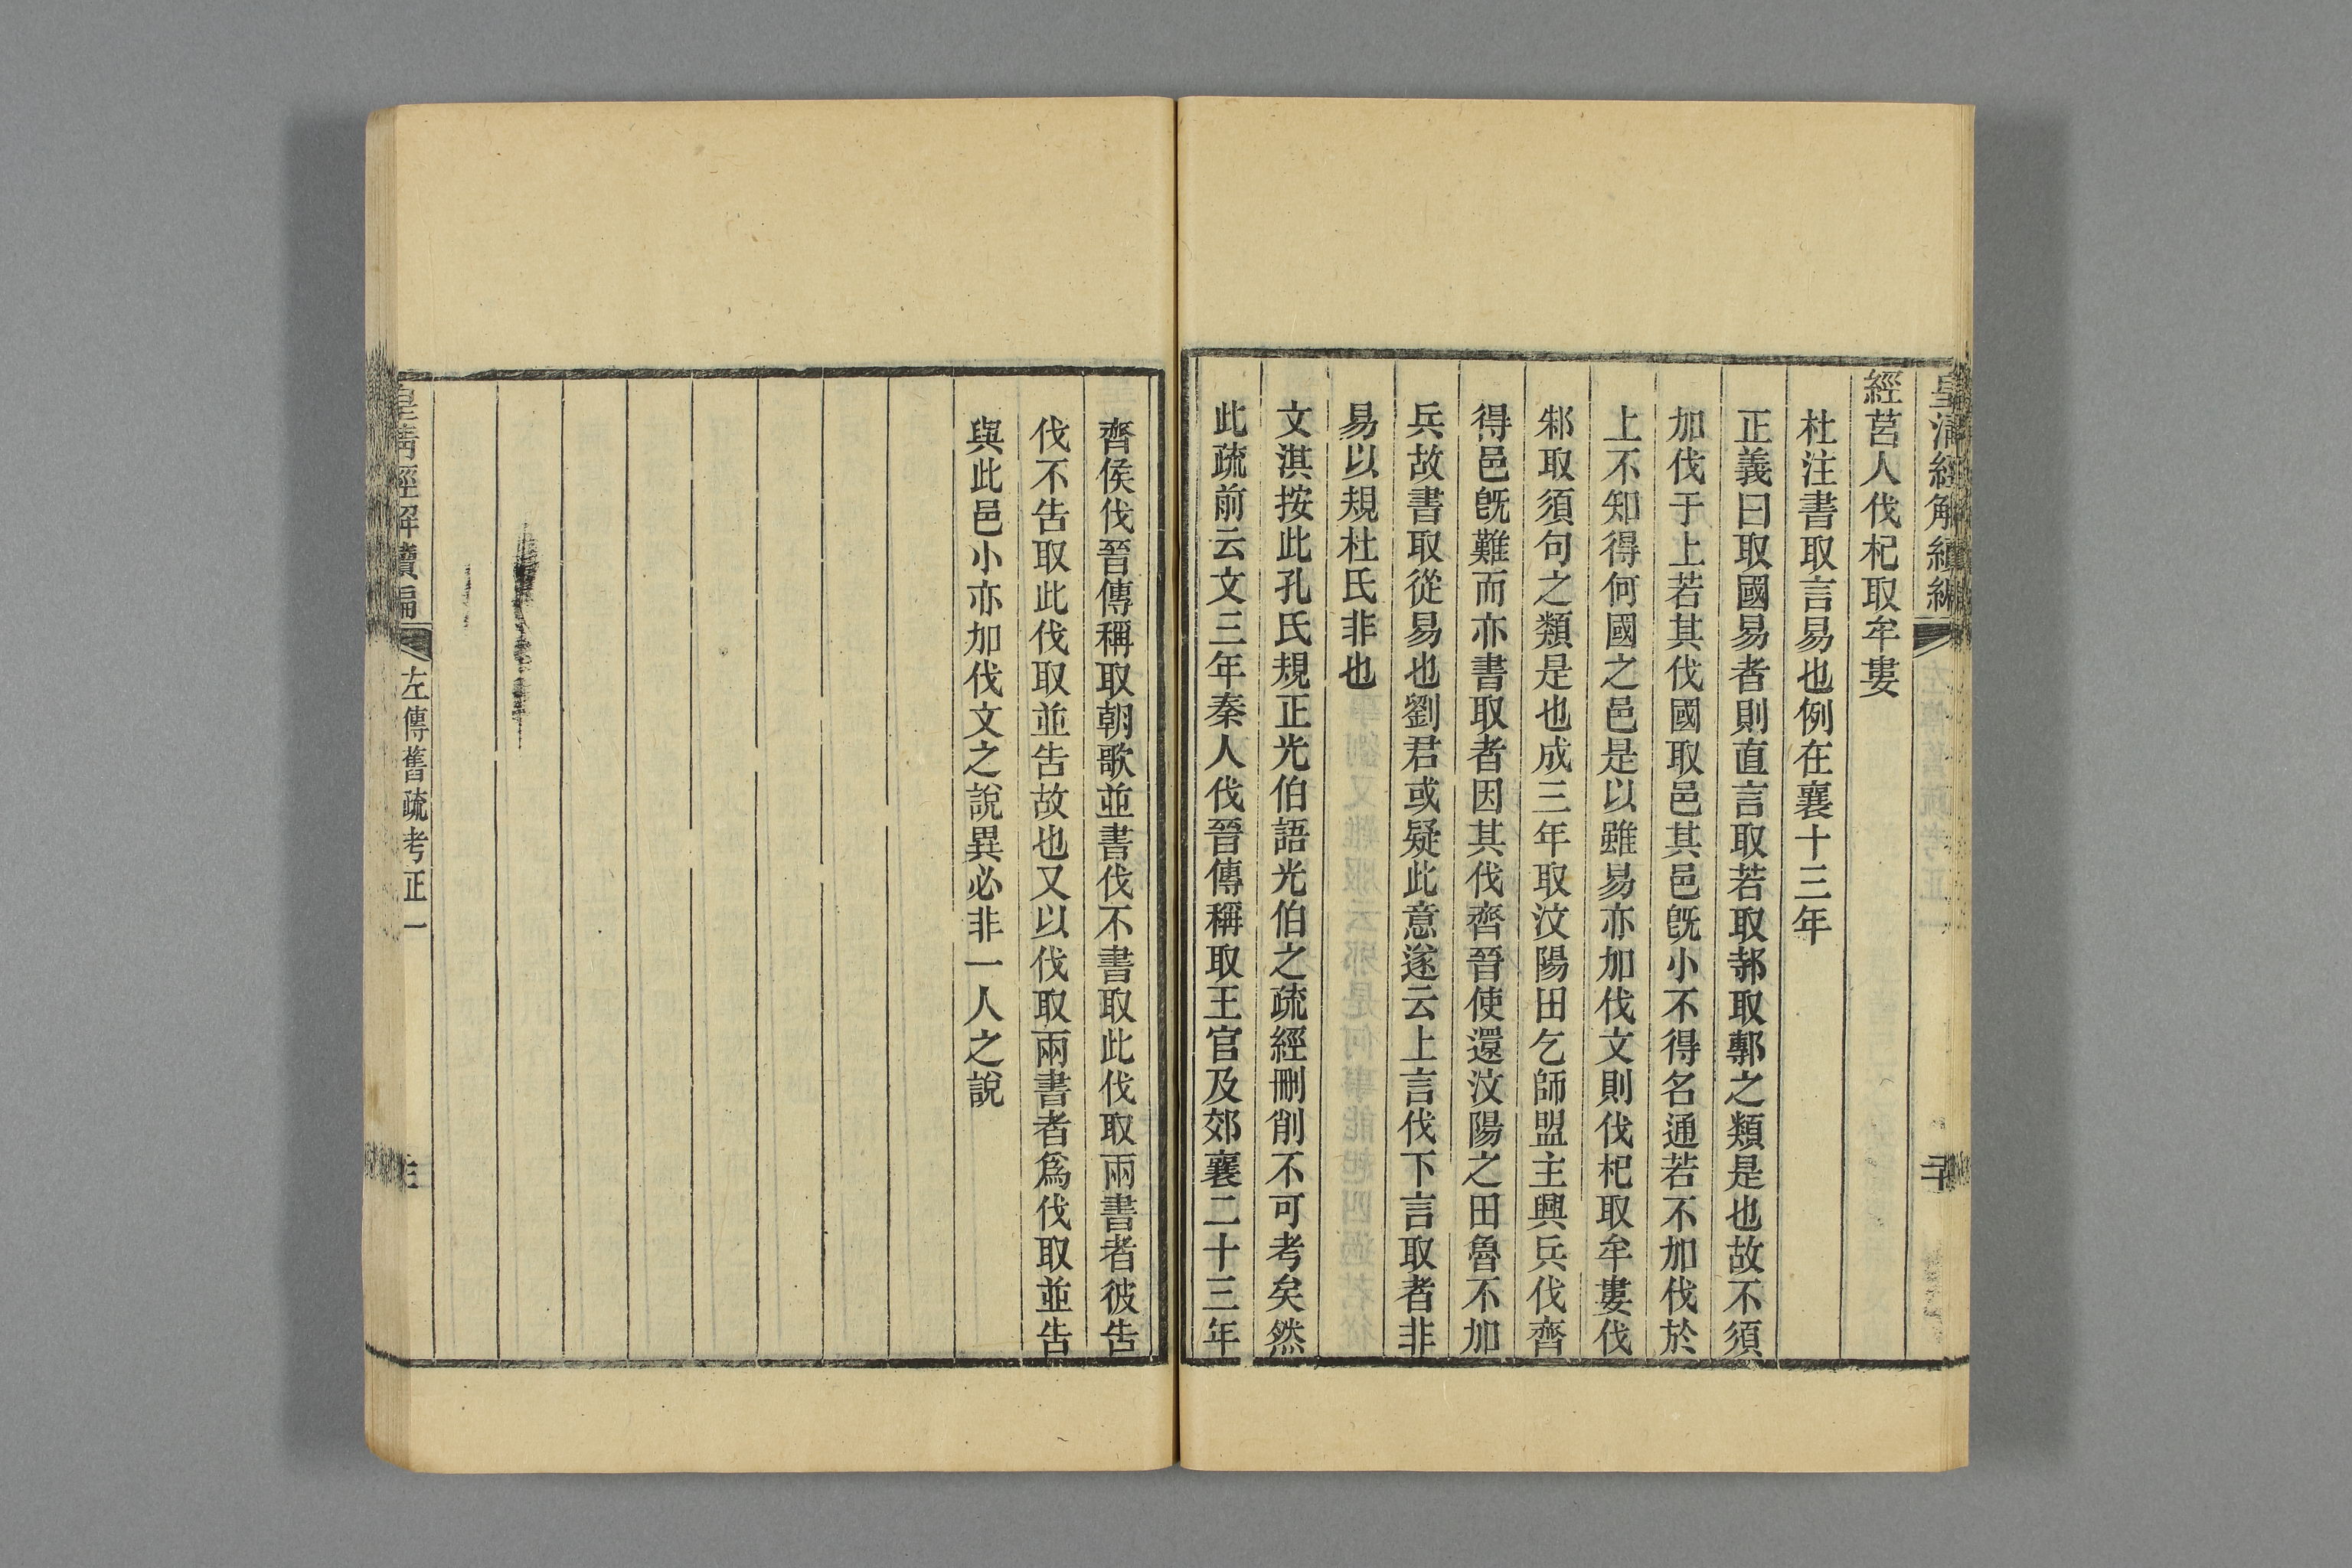 皇清經解續編
二十
經莒人伐杞取牟婁
杜注書取言易也例在襄十三年
正義曰取國易者則直言取若取邿取鄟之類是也故不須
加伐于上若其伐國取邑其邑旣小不得名通若不加伐於
上不知得何國之邑是以雖易亦加伐文則伐杞取牟婁伐
邾取須句之類是也成三年取汶陽田乞師盟主興兵伐齊
得邑旣難而亦書取者因其伐齊晉使還汶陽之田魯不加
兵故書取從易也劉君或疑此意遂云上言伐下言取者非
易以規杜氏非也
文淇按此孔氏規正光伯語光伯之疏經刪削不可考矣然
此疏前云文三年秦人伐晉傳稱取王官及郊襄二十三年
齊侯伐晉傳稱取朝歌並書伐不書取此伐取兩書者彼告
伐不告取此伐取並告故也又以伐取兩書者爲伐取並告
與此邑小亦加伐文之說異必非一人之說
皇清經解續編
左傳舊疏考正一